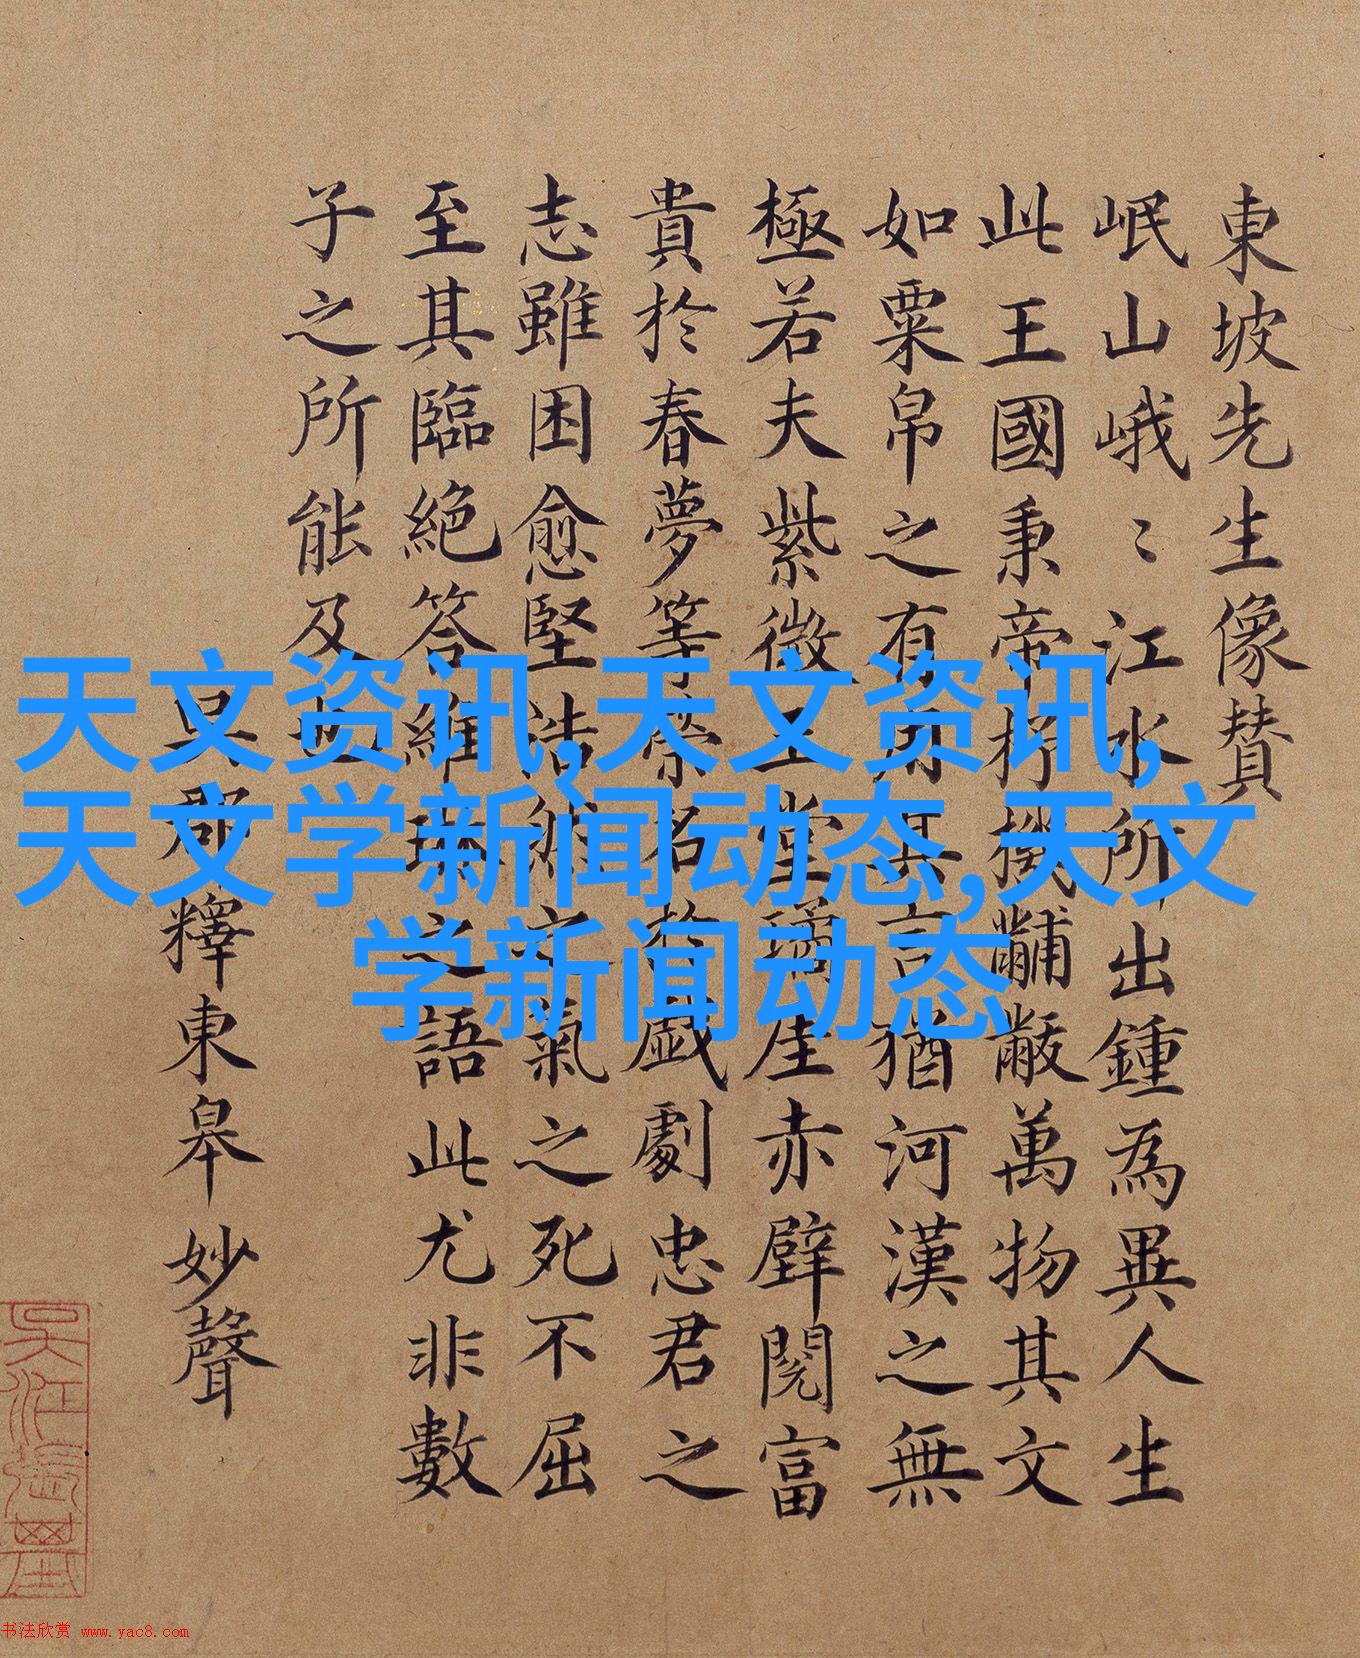 東坡先生像賛
岷山峨〻江水所出鍾為異人生
此王國秉帝杼機黼黻萬物其文
如粟帛之有用其言猶河漢之無
極若夫紫微玉堂瓊崖赤壁閱富
貴於春夢等榮名於戲劇忠君之
志雖困愈堅浩然之氣之死不屈
至其臨絕答維琳之語此尤非數
子之所能及也
吳郡釋東皋妙聲
天文资讯,天文资讯,
天文学新闻动态,天文
学新闻动态
书法欣赏 www.yac8.com